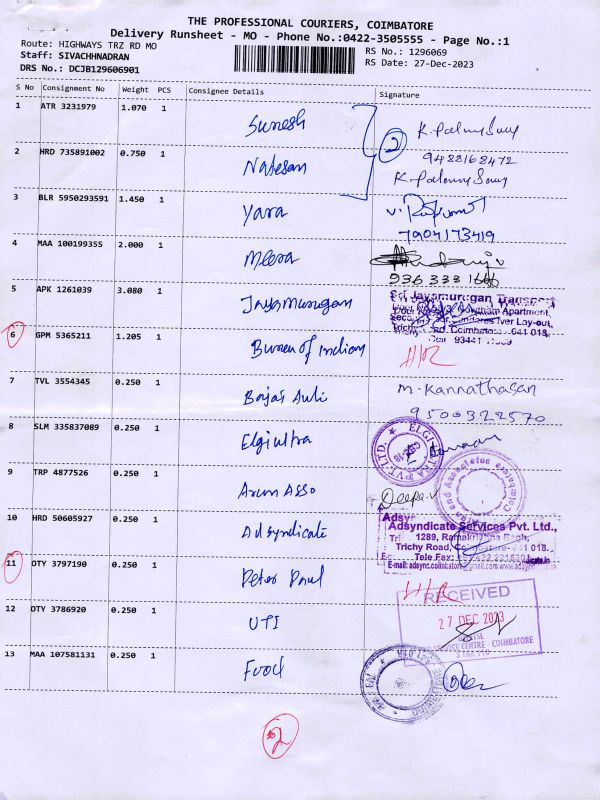 THE PROFESSIONAL COURIERS, COIMBATORE
Delivery Runsheet - MO - Phone No.:0422-3505555 - Page No.:1
Route: HIGHWAYS TRZ RD MO
RS No.: 1296069
Staff: SIVACHHNADRAN
RS Date: 27-Dec-2023
DRS No.: DCJB129606901
S No Consignment No Weight PCS Consignee Details Signature
1 ATR 3231979 1.070 1 Suresh
2
9488168472
2 HRD 735891002 0.750 1 Natesan
3 BLR 5950293591 1.450 1 Yara
7904173419
4 MAA 100199355 2.000 1 Meera
936 333 1666
5 APK 1261039 3.080 1 Jayamurugan
Sri Jayamurugan Transport
Apartment,
Iyer Lay-out,
Trichy Rd. Coimbatore- 641 018.
6 GPM 5365211 1.205 1 Bureau of Indian
H/R
7 TVL 3554345 0.250 1 Bajaj Auli
M. Kannathasan
9500322570
8 SLM 335837089 0.250 1 Elgiultra
9 TRP 4877526 0.250 1 Arun Asso
Deepa.v
10 HRD 50605927 0.250 1 Adsyndicate
Adsyndicate Services Pvt. Ltd.,
1289, Ramakrishna
Trichy Road, Coimbatore- 641 018.
11 OTY 3797190 0.250 1 Peter Paul
H/R
RECEIVED
27 DEC 2023
SERVICE CENTRE COIMBATORE
12 OTY 3786920 0.250 1 UTI
13 MAA 107581131 0.250 1 Food
2